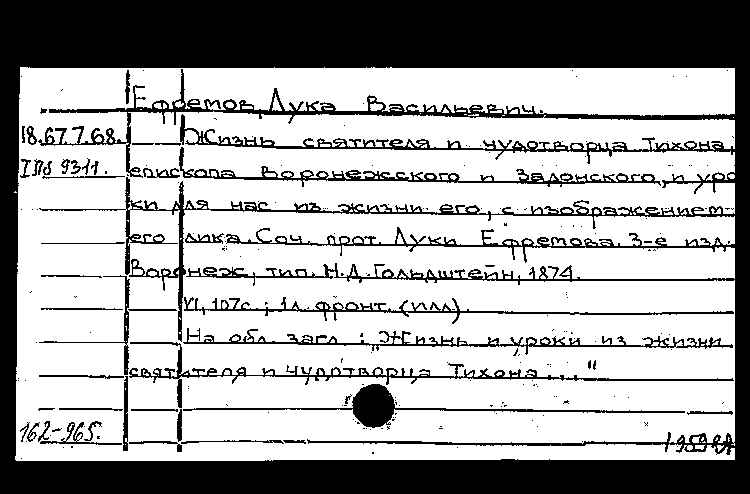 Ефремов, Лука Васильевич.
18.67.7.68. Жизнь святителя и чудотворца Тихона,
епископа Воронежского и Задонского, и уро
ки для нас из жизни его, с изображением
его лика. Соч. прот. Луки Ефремова. 3-е изд.
Воронеж, тип. Н.Д. Гольдштейн, 1874.
VI, 107с.; 1л. фронт. (илл).
На обл. загл.: "Жизнь и уроки из жизни
святителя и чудотворца Тихона..."
162-965.